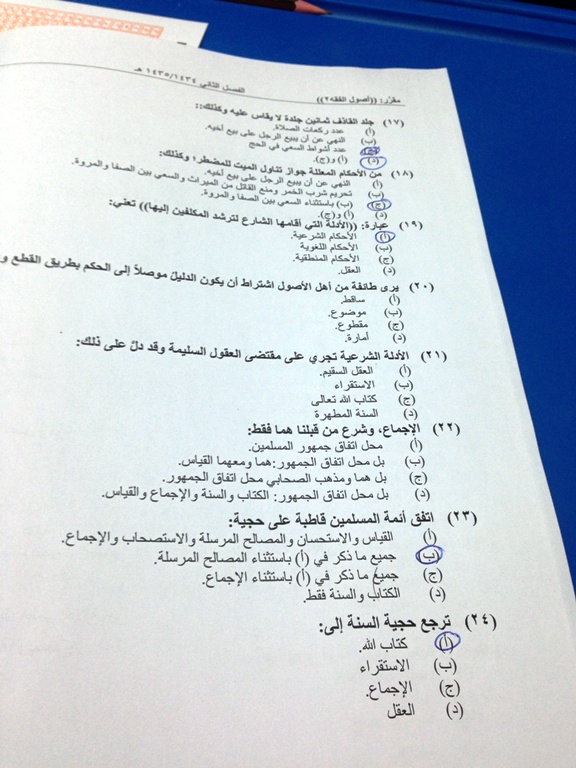 مقرّر: ((أصول الفقه٢)) الفصل الثاني ١٤٣٥/١٤٣٤ هـ
(١٧) جلد القاذف ثمانين جلدة لا يقاس عليه وكذلك::
(أ) عدد ركعات الصلاة.
(ب) النهي عن أن يبيع الرجل على بيع أخيه.
(ج) عدد أشواط السعي في الحج
(د) (أ) و(ج).
(١٨) من الأحكام المعللة جواز تناول الميت للمضطر؛ وكذلك:
(أ) النهي عن أن يبيع الرجل على بيع أخيه.
(ب) تحريم شرب الخمر ومنع القاتل من الميراث والسعي بين الصفا والمروة.
(ج) (ب) باستثناء السعي بين الصفا والمروة.
(د) (أ) و(ج).
(١٩) عبارة: ((الأدلة التي أقامها الشارع لترشد المكلفين إليها)) تعني:
(أ) الأحكام الشرعية.
(ب) الأحكام اللغوية
(ج) الأحكام المنطقية.
(د) العقل.
(٢٠) يرى طائفة من أهل الأصول اشتراط أن يكون الدليل موصلاً إلى الحكم بطريق القطع و
(أ) ساقط.
(ب) موضوع.
(ج) مقطوع.
(د) أمارة.
(٢١) الأدلة الشرعية تجري على مقتضى العقول السليمة وقد دلَّ على ذلك:
(أ) العقل السقيم.
(ب) الاستقراء
(ج) كتاب الله تعالى
(د) السنة المطهرة
(٢٢) الإجماع، وشرع من قبلنا هما فقط:
(أ) محل اتفاق جمهور المسلمين.
(ب) بل محل اتفاق الجمهور: هما ومعهما القياس.
(ج) بل هما ومذهب الصحابي محل اتفاق الجمهور.
(د) بل محل اتفاق الجمهور: الكتاب والسنة والإجماع والقياس.
(٢٣) اتفق أئمة المسلمين قاطبة على حجية:
(أ) القياس والاستحسان والمصالح المرسلة والاستصحاب والإجماع.
(ب) جميع ما ذكر في (أ) باستثناء المصالح المرسلة.
(ج) جميع ما ذكر في (أ) باستثناء الإجماع.
(د) الكتاب والسنة فقط.
(٢٤) ترجع حجية السنة إلى:
(أ) كتاب الله.
(ب) الاستقراء
(ج) الإجماع.
(د) العقل